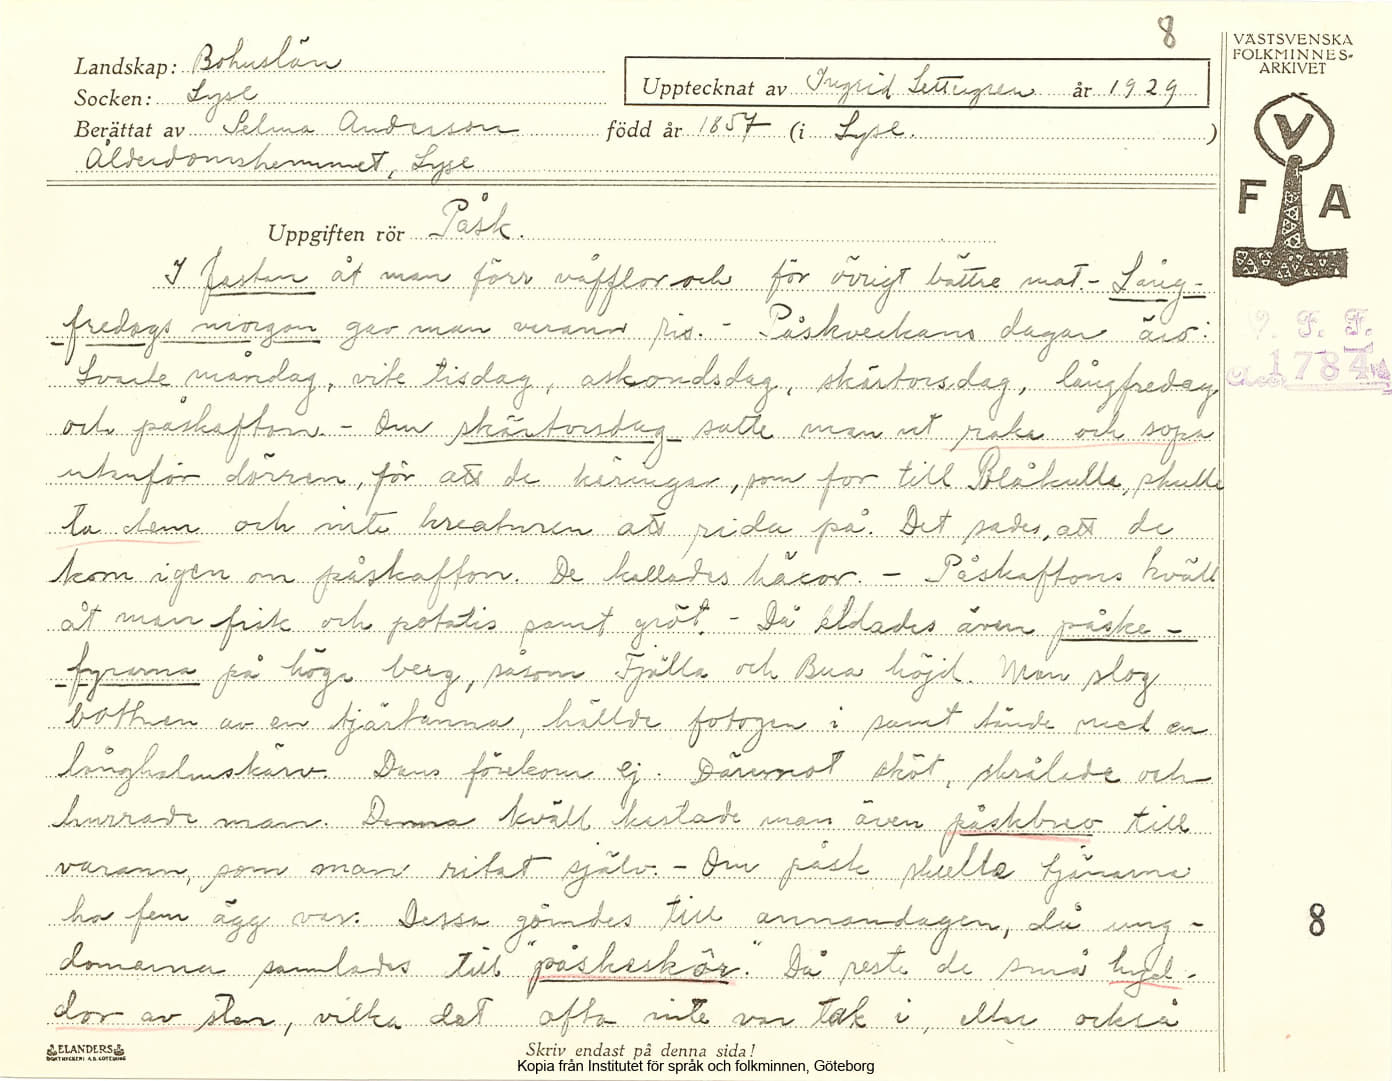 8
VÄSTSVENSKA
FOLKMINNES-
ARKIVET
Landskap: Bohuslän
Socken: Lyse
Upptecknat av Ingrid Settergren år 1929
Berättat av Selma Anderson född år 1857 (i Lyse.)
Ålderdomshemmet, Lyse
V
F A
Uppgiften rör Påsk.
I fastan åt man förr våfflor och för övrigt bättre mat. - Lång-
fredags morgon gav man varann ris. - Påskveckans dagar äro:
Svarte måndag, vite tisdag, askondsdag, skärtorsdag, långfredag
och påskafton. - Om skärtorsdag satte man ut raka och sopa
utanför dörren, för att de käringar, som for till Blåkulla, skulle
ta dem och inte kreaturen att rida på. Det sades, att de
kom igen on påskafton. De kallades håcor. - Påskaftons kväll
åt man fisk och potatis samt gröt. - Då eldades även påske-
fyrarna på höga berg, såsom Fjälla och Bua höjd. Man slog
bottnen av en tjärtunna, hällde fotogen i samt tände med en
långhalmskärv. Dans förekom ej. Däremot sköt, skrålade och
hurrade man. Denna kväll kastade man även påskbrev till
varann, som man ritat själv. - Om påsk skulle tjänarna
ha fem ägg var. Dessa gömdes till annandagen, då ung-
domarna samlades till "påskaskör". Då reste de små hyd-
dor av sten, vilka det ofta inte var tak i, eller också
V. F. F.
1784
8
ELANDERS
BOKTRYCKERI A.B. GÖTEBORG
Skriv endast på denna sida!
Kopia från Institutet för språk och folkminnen, Göteborg